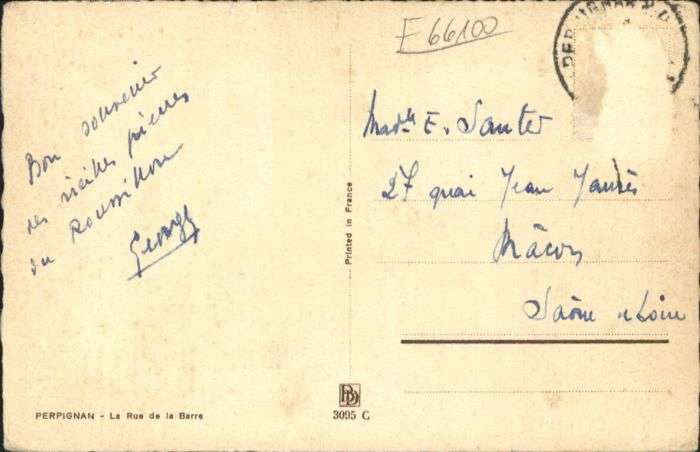 E 66100
PERPIGNAN R.P.
Bon souvenir
des vieilles pierres
du Roussillon
Georges
Madlle E. Sauter
27 quai Jean Jaurès
Mâcon
Saône et Loire
Printed in France
BD
3095 C
PERPIGNAN - La Rue de la Barre